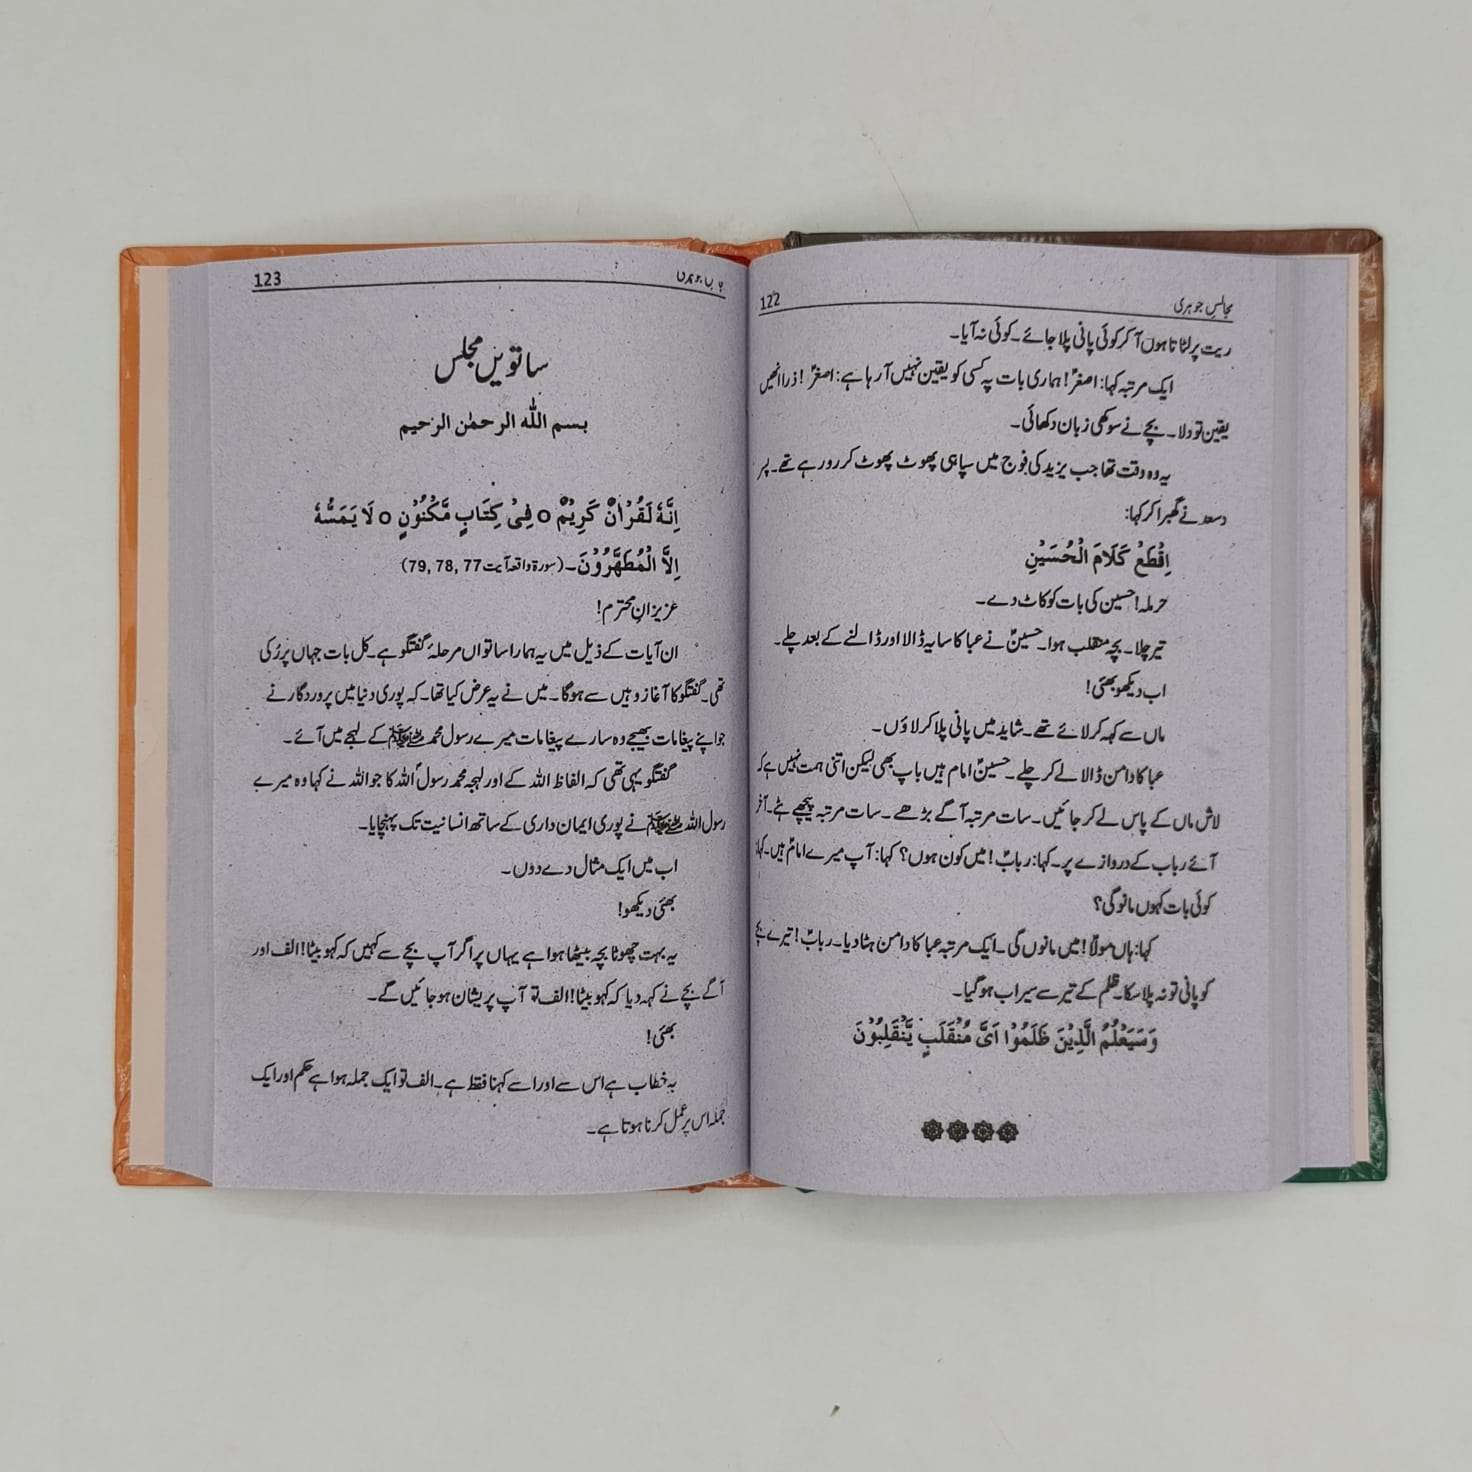 مجالسِ جوہری
122
ریت پر لٹاتا ہوں آ کر کوئی پانی پلا جائے۔ کوئی نہ آیا۔
ایک مرتبہ کہا: اصغرؑ! ہماری بات پہ کسی کو یقین نہیں آ رہا ہے: اصغرؑ! ذرا انھیں
یقین تو دلا۔ بچے نے سوکھی زبان دکھائی۔
یہ وہ وقت تھا جب یزید کی فوج میں سپاہی پھوٹ پھوٹ کر رو رہے تھے۔ پسر
سعد نے گھبرا کر کہا:
اِقْطَعْ كَلَامَ الْحُسَيْنِ
حرملہ! حسین کی بات کو کاٹ دے۔
تیر چلا۔ بچہ منقلب ہوا۔ حسینؑ نے عبا کا سایہ ڈالا اور ڈالنے کے بعد چلے۔
اب دیکھو بھئی!
ماں سے کہہ کر لائے تھے۔ شاید میں پانی پلا کر لاؤں۔
عبا کا دامن ڈالا لے کر چلے۔ حسینؑ امام ہیں باپ بھی لیکن اتنی ہمت نہیں ہے کہ
لاش ماں کے پاس لے کر جائیں۔ سات مرتبہ آگے بڑھے۔ سات مرتبہ پیچھے ہٹے۔ آخر
آئے رباب کے دروازے پر۔ کہا: ربابؑ! میں کون ہوں؟ کہا: آپ میرے امامؑ ہیں۔ کہا:
کوئی بات کہوں مانو گی؟
کہا: ہاں مولاؑ! میں مانوں گی۔ ایک مرتبہ عبا کا دامن ہٹا دیا۔ ربابؑ! تیرے بچے
کو پانی تو نہ پلا سکا۔ ظلم کے تیر سے سیراب ہو گیا۔
وَسَيَعْلَمُ الَّذِيْنَ ظَلَمُوْا اَىَّ مُنْقَلَبٍ يَّنْقَلِبُوْنَ
123
ساتویں مجلس
بسم اللّٰه الرحمٰن الرحیم
اِنَّهٗ لَقُرْاٰنٌ كَرِيْمٌ o فِىْ كِتَابٍ مَّكْنُوْنٍ o لَا يَمَسُّهٗ
اِلَّا الْمُطَهَّرُوْنَ۔ (سورۃ واقعہ آیت 77, 78, 79)
عزیزانِ محترم!
ان آیات کے ذیل میں یہ ہمارا ساتواں مرحلۂ گفتگو ہے۔ کل بات جہاں پر رُکی
تھی۔ گفتگو کا آغاز وہیں سے ہوگا۔ میں نے یہ عرض کیا تھا۔ کہ پوری دنیا میں پروردگار نے
جو اپنے پیغامات بھیجے وہ سارے پیغامات میرے رسول محمد ﷺ کے لہجے میں آئے۔
گفتگو یہی تھی کہ الفاظ اللہ کے اور لہجہ محمد رسولؐ اللہ کا جو اللہ نے کہا وہ میرے
رسول اللہ ﷺ نے پوری ایمان داری کے ساتھ انسانیت تک پہنچایا۔
اب میں ایک مثال دے دوں۔
بھئی دیکھو!
یہ بہت چھوٹا بچہ بیٹھا ہوا ہے یہاں پر اگر آپ بچے سے کہیں کہ کہو بیٹا! الف اور
آگے بچے نے کہہ دیا کہ کہو بیٹا! الف تو آپ پریشان ہو جائیں گے۔
بھئی!
یہ خطاب ہے اس سے اور اسے کہنا فقط ہے۔ الف تو ایک جملہ ہوا ہے حکم اور ایک
جملہ اس پر عمل کرنا ہوتا ہے۔